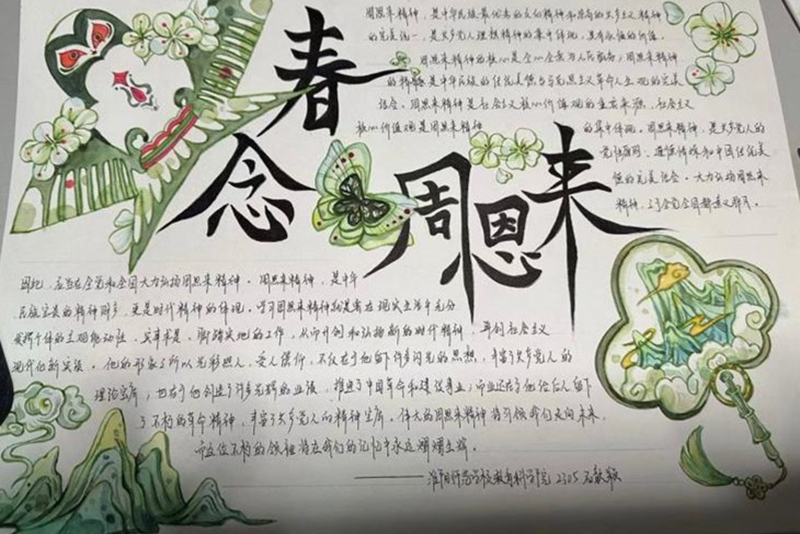 春
念
周恩来
周恩来精神，是中华民族最优秀的文化精神和崇高的共产主义精神
的完美统一，是共产党人理想精神的集中体现，具有永恒的价值。
周恩来精神的核心是全心全意为人民服务，周恩来
的精神是中华民族的传统美德与马克思主义革命人生观的完美
结合。周恩来精神是社会主义核心价值观的重要来源，社会主义
核心价值观是周恩来精神
的集中体现。周恩来精神，是共产党人的
党性原则、道德情操和中国传统美
德的完美结合。大力弘扬周恩来
精神，对全党全国都意义非凡。
因此，应当在全党和全国大力弘扬周恩来精神。周恩来精神，是中华
民族宝贵的精神财富，更是时代精神的体现。学习周恩来精神就是要在现实生活中充分
发挥个体的主观能动性，实事求是、脚踏实地的工作，从而开创和弘扬新的时代精神，开创社会主义
现代化新实践。他的形象之所以光彩照人，受人景仰，不仅在于他留下许多闪光的思想，丰富了共产党人的
理论宝库，也在于他创造了许多光辉的业绩，推进了中国革命和建设事业；而且还在于他给后人留下
了不朽的革命精神，丰富了共产党人的精神宝库。伟大的周恩来精神将引领我们走向未来，
而这位不朽的领袖将在我们的记忆中永远熠熠生辉。
——淮阴师范学校教育科学学院 2305 石